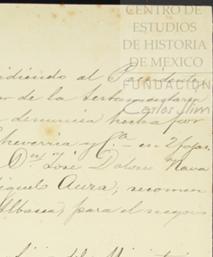 CENTRO DE
ESTUDIOS
DE HISTORIA
DE MEXICO
FUNDACIÓN
Carlos Slim
idiendo al Presidente
or de la testamentaría
denuncia hecha por
cheverria y Cª en
Dn José Dolores Nava
iguel Auza, recomen
Albacea, para el mejor